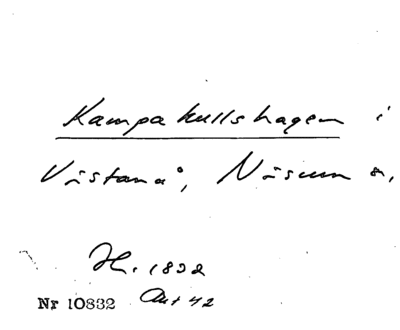 Kampakullshagen i
Västanå, Näsum s.
H. 1832
Nr 10832 Akt 42